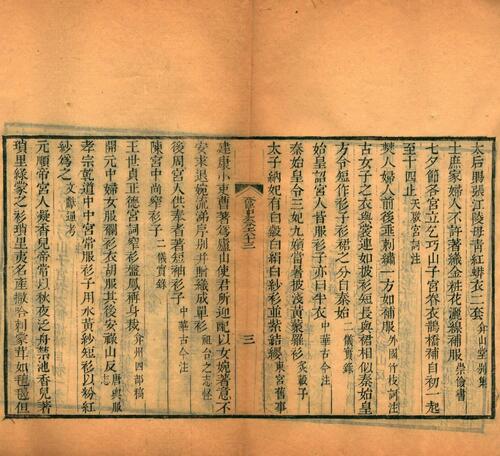 太后賜張江陵母青紅蟒衣二套 山堂別集
士庶家婦人不許著織金粧花灑線補服 崇儉書
七夕節各宮立乞巧山子宮眷衣鵲橋補自初一起
至十四止 天啟宮詞注
樊人婦人前後垂刺繡一方如補服 外國竹枝詞注
古女子之衣與裳連如披衫短長與裙相似秦始皇
方令短作衫子衫裙之分自秦始 二儀實錄
始皇詔宮人皆服衫子亦曰半衣 中華古今注
秦始皇令三妃九嬪當暑披淺黃藂羅衫 炙轂子
太子納妃有白縠白絹白紗衫並紫結纓 東宮舊事
三
建康小吏曹著爲廬山使君所迎配以女婉著意不
安求退婉流涕序別并贈織成單衫 祖台之志怪
後周宮人供奉者著短袖衫子 中華古今注
陳宮中尚窄衫子 二儀實錄
王世貞正德宮詞窄衫盤鳳稱身裁 弇州四部稿
開元中婦女服襴衫衣胡服其後安祿山反 唐輿服志
孝宗乾道中中宮常服衫子用水黃紗短衫以粉紅
紗爲之 文獻通考
元順帝宮人凝香兒帝常以秋夜泛舟禁池香兒著
瑣里綠蒙之衫瑣里夷名產撒哈剌蒙茸如氊毼但